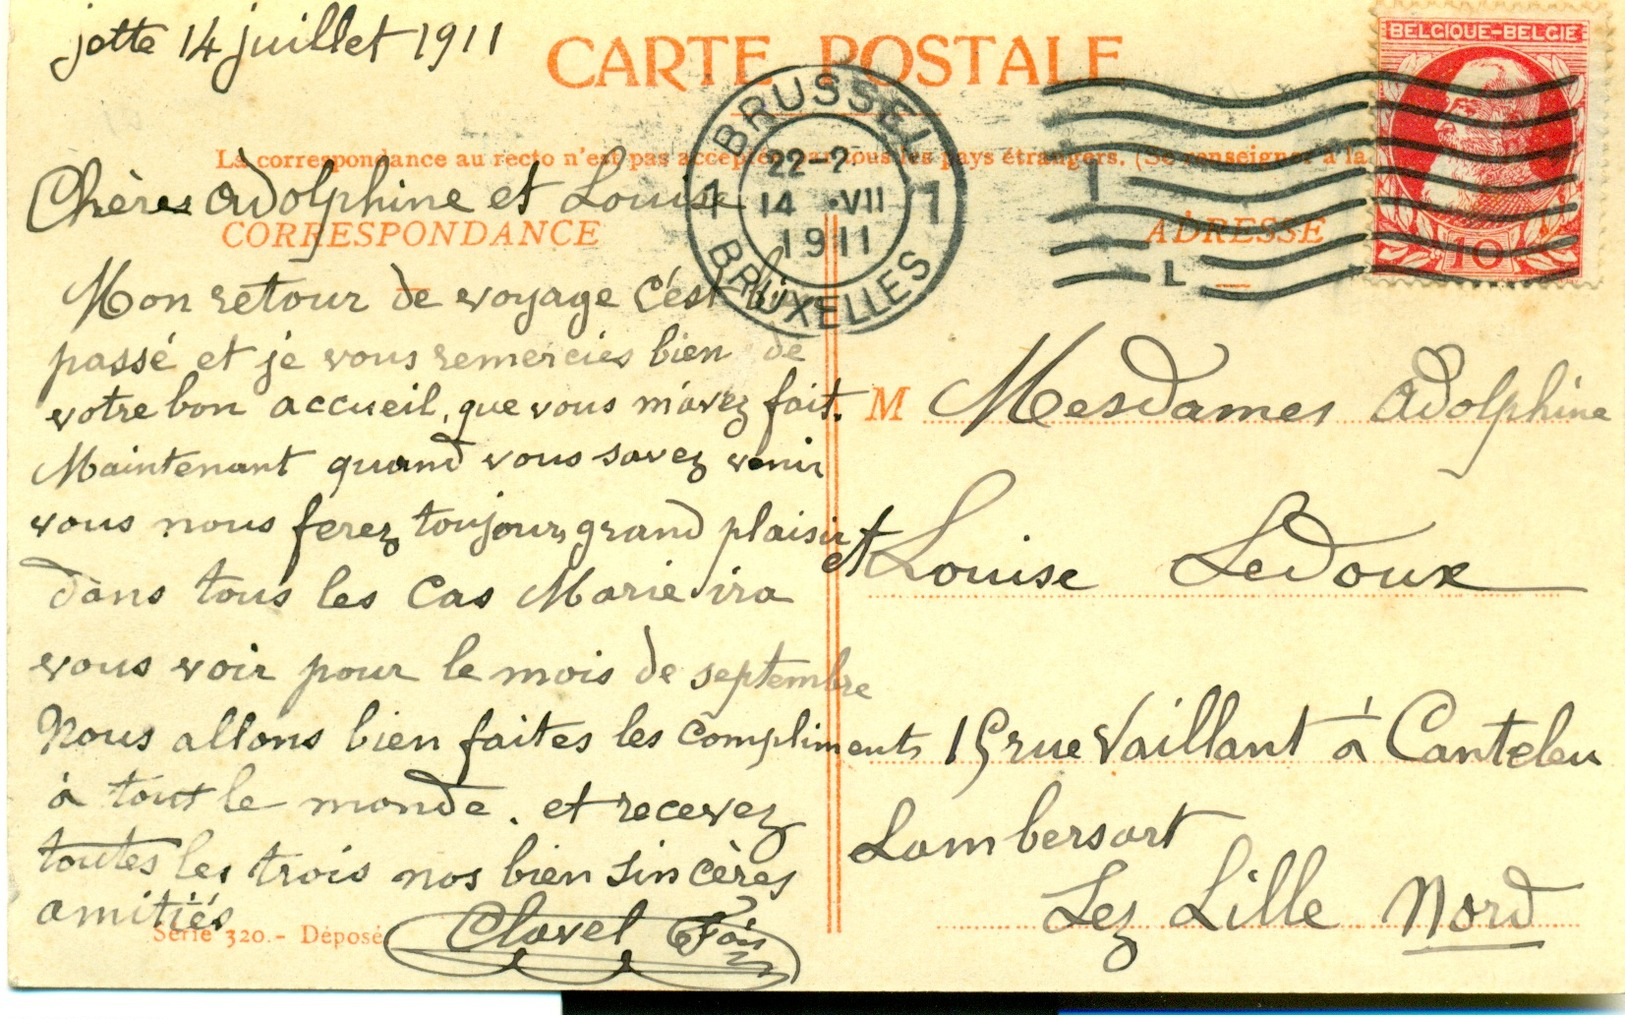 jette 14 juillet 1911
CARTE POSTALE
BELGIQUE-BELGIE
10
BRUSSEL
22-?
1 14 VII 1
1911
BRUXELLES
La correspondance au recto n'est pas acceptée par tous les pays étrangers. (Se renseigner à la
CORRESPONDANCE
ADRESSE
Chères Adolphine et Louise
Mon retour de voyage c'est bien
passé et je vous remercies bien de
votre bon accueil, que vous m'avez fait.
Maintenant quand vous savez venir
vous nous ferez toujours grand plaisir
dans tous les cas Marie ira
vous voir pour le mois de septembre
Nous allons bien faites les compliments
à tout le monde. et recevez
toutes les trois nos bien sincères
amitiés
Clavel Fois
Série 320.- Déposé
M Mesdames Adolphine
et Louise Ledoux
15 rue Vaillant à Canteleu
Lambersart
Lez Lille Nord